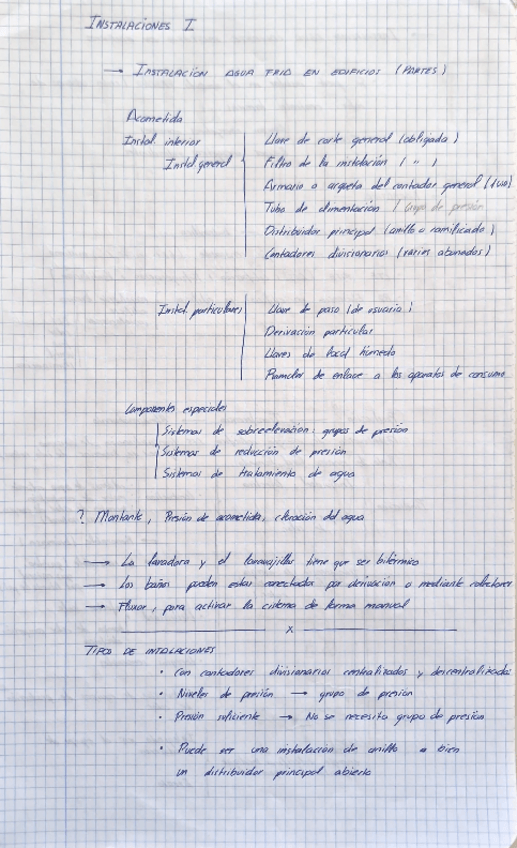 INSTALACIONES I
→ INSTALACIÓN AGUA FRIA EN EDIFICIOS (PARTES)
Acometida
Instal. interior
Instal. general
Llave de corte general (obligada)
Filtro de la instalación ( " )
Armario o arqueta del contador general (1 uso)
Tubo de alimentación / Grupo de presión
Distribuidor principal (anillo o ramificado)
Contadores divisionarios (varios abonados)
Instal. particulares
Llave de paso (de usuario)
Derivación particular
Llaves de local húmedo
Ramales de enlace a los aparatos de consumo
Componentes especiales
Sistemas de sobreelevación: grupos de presión
Sistemas de reducción de presión
Sistemas de tratamiento de agua
? Montante, Presión de acometida, cloración del agua
→ La lavadora y el lavavajillas tiene que ser bitérmico
→ Los baños pueden estar conectados por derivación o mediante colectores
→ Fluxor, para activar la cisterna de forma manual
x
TIPOS DE INTALACIONES
• Con contadores divisionarios centralizados y descentralizados
• Niveles de presión → grupo de presion
• Presión suficiente → No se necesita grupo de presión
• Puede ser una instalación de anillo o bien
un distribuidor principal abierto